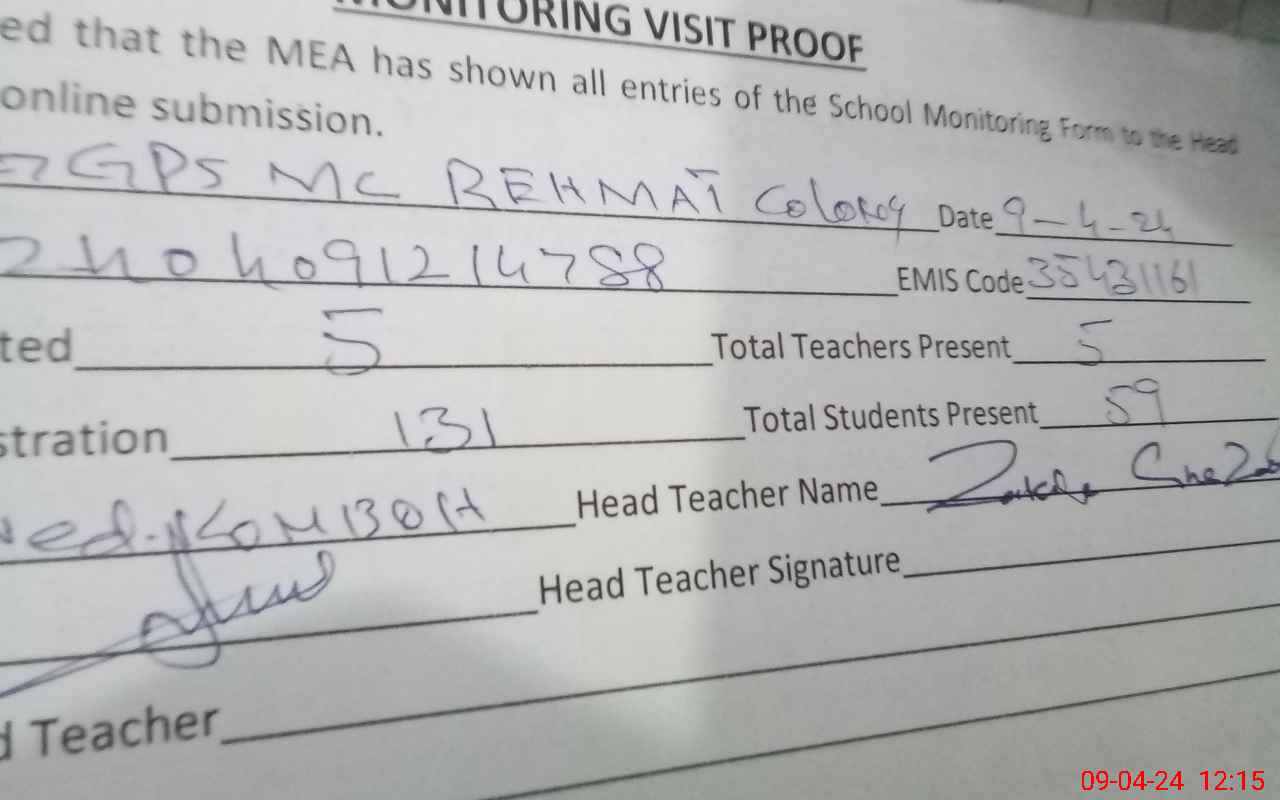 MONITORING VISIT PROOF
ed that the MEA has shown all entries of the School Monitoring Form to the Head
online submission.
GPS MC REHMAT Colony Date 9-4-24
2404091214788 EMIS Code 35431161
ted 5 Total Teachers Present 5
stration 131 Total Students Present 59
Head Teacher Name
Head Teacher Signature
d Teacher
09-04-24 12:15